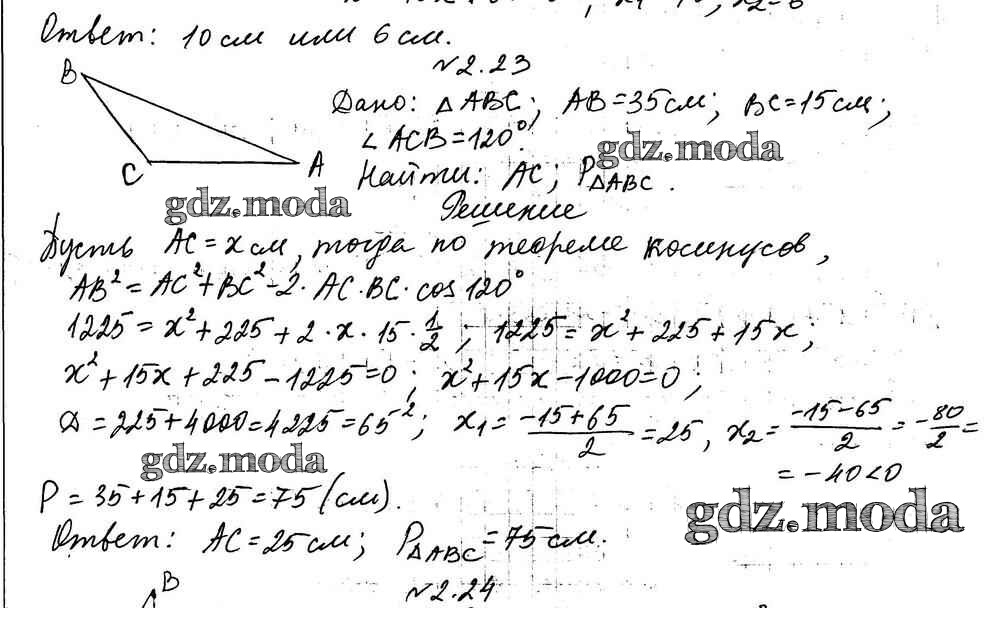 Ответ: 10 см или 6 см.
№2.23
B
C
A
Дано: △ABC; AB=35см; BC=15см;
∠ACB=120°.
gdz.moda
Найти: AC; P△ABC.
gdz.moda
Решение
Пусть AC=x см, тогда по теореме косинусов,
AB²=AC²+BC²-2·AC·BC·cos120°
1225=x²+225+2·x·15·1/2; 1225=x²+225+15x;
x²+15x+225-1225=0; x²+15x-1000=0;
D=225+4000=4225=65²; x₁=(-15+65)/2=25, x₂=(-15-65)/2=-80/2=
=-40<0
gdz.moda
P=35+15+25=75(см).
gdz.moda
Ответ: AC=25см; P△ABC=75см.
B
№2.24